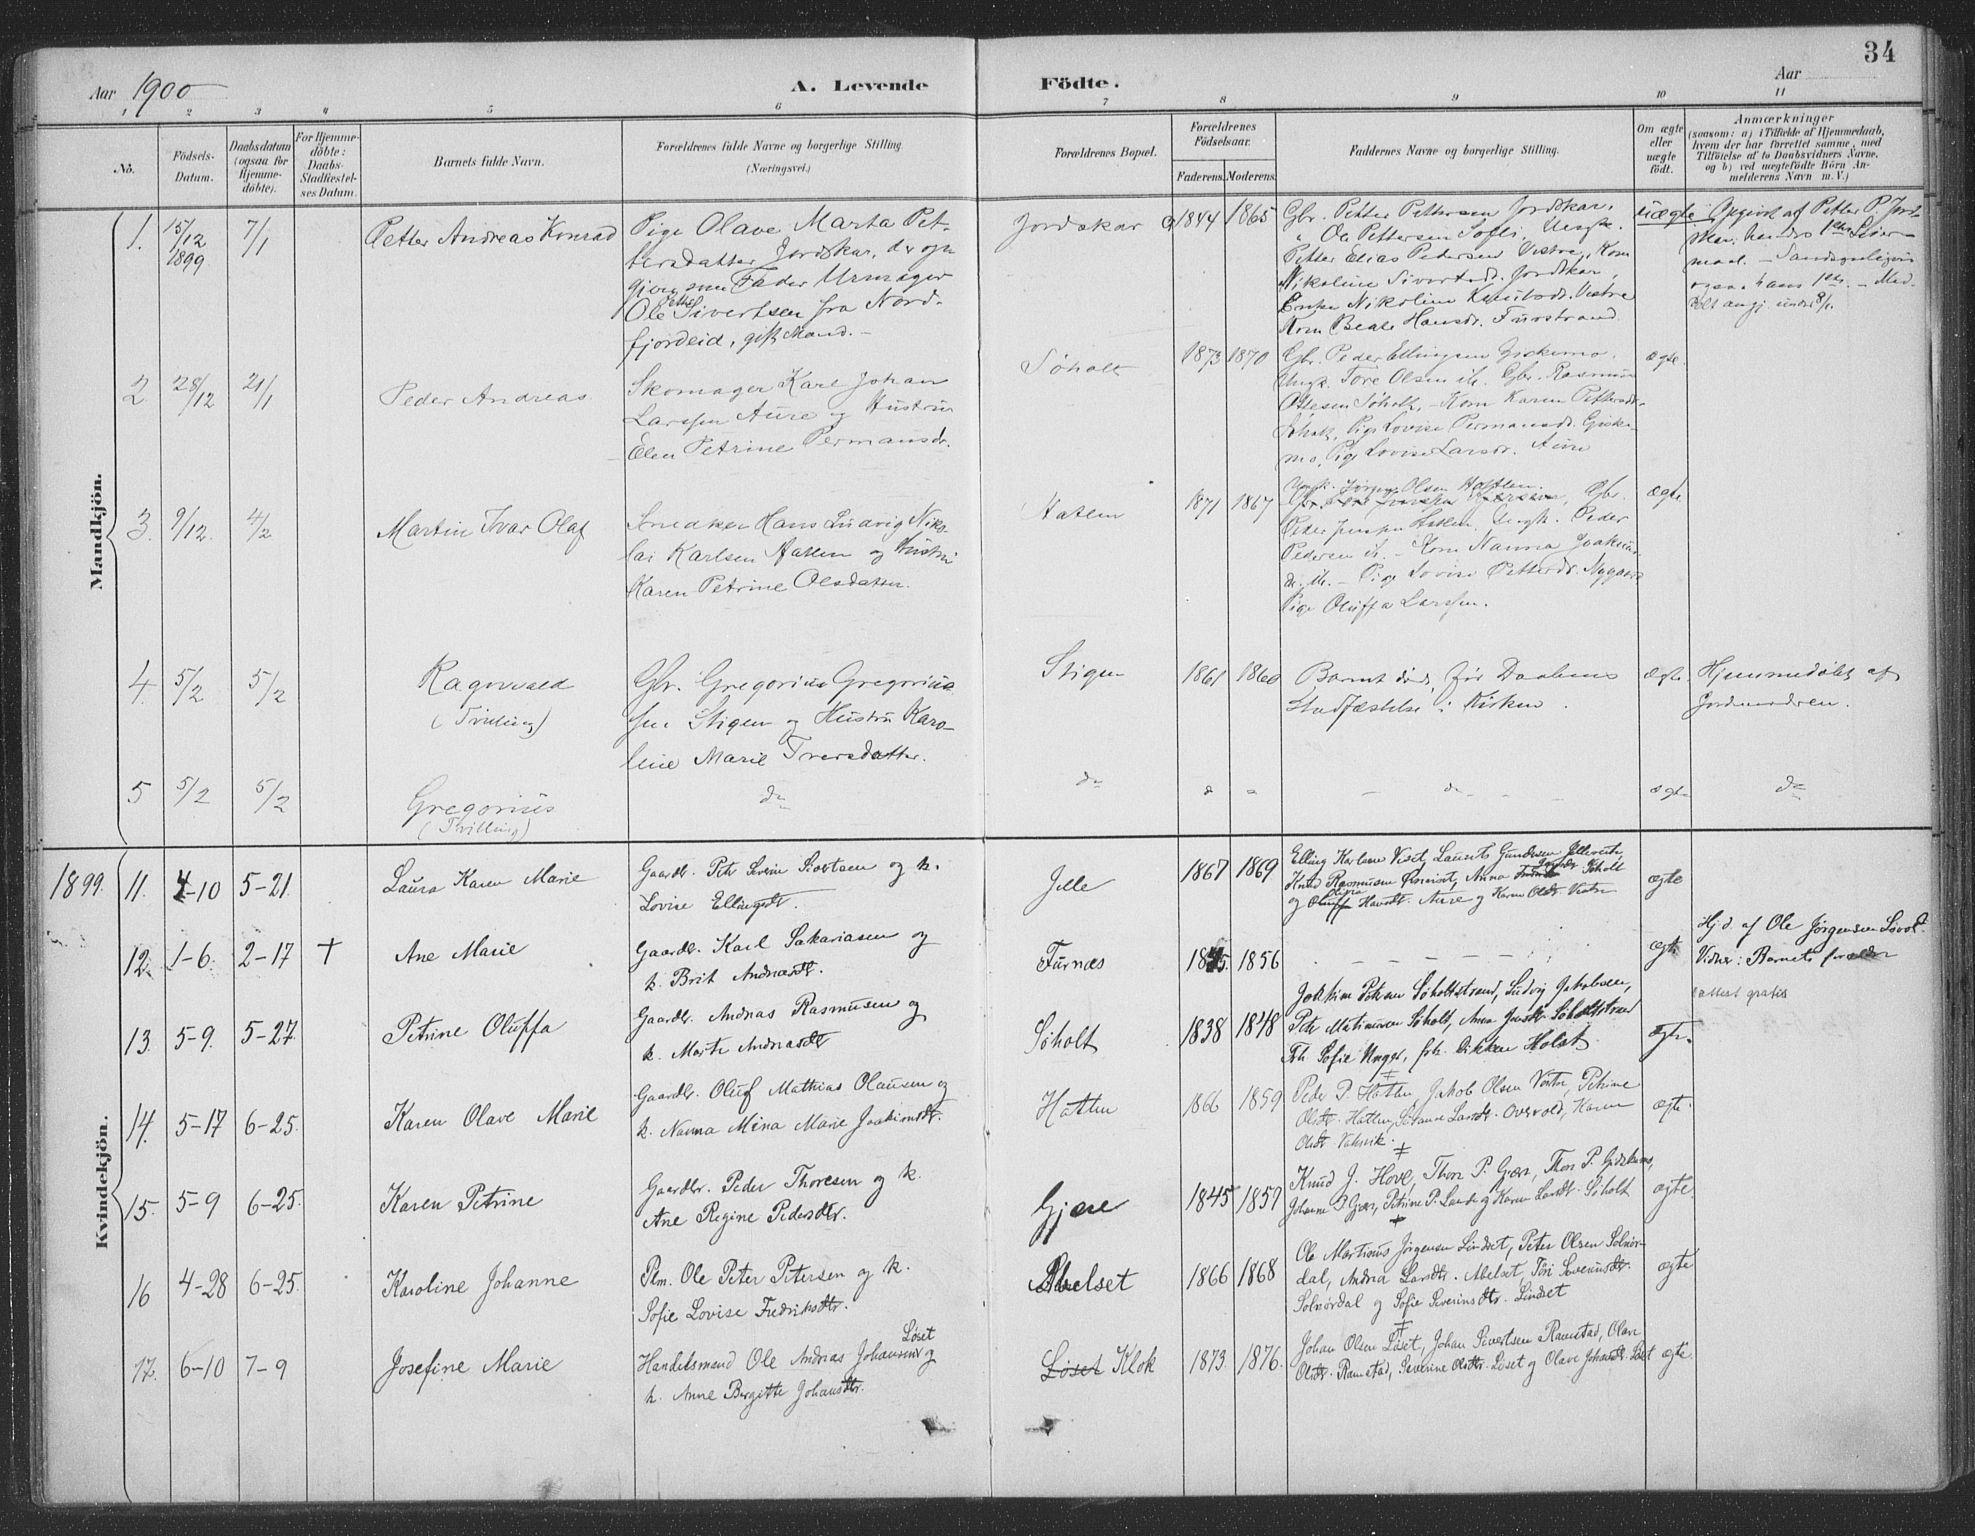 34
Aar 1900
A. Levende
Födte.
Aar
1 2 3 4 5 6 7 8 9 10 11
No.
Födsels-
Datum.
Daabsdatum
(ogsaa for
Hjemme-
döbte).
For Hjemme-
döbte:
Daabs-
Stadfæstel-
ses Datum.
Barnets fulde Navn.
Forældrenes fulde Navne og borgerlige Stilling.
(Næringsvei.)
Forældrenes Bopæl.
Forældrenes
Födselsaar.
Faderens. Moderens.
Faddernes Navne og borgerlige Stilling.
Om ægte
eller
uægte
födt.
Anmærkninger
(saasom: a) i Tilfælde af Hjemmedaab,
hvem der har forrettet samme, med
Tilföielse af to Daabsvidners Navne,
og b) ved uægtefödte Börn An-
melderens Navn m. V.)
Mandkjön.
1. 15/12 1899 7/1
Petter Andreas Konrad
Pige Olave Marta Pet-
tersdatter Jordskar, der op-
giver som Fader Urmager
Ole Sivertsen fra Nord-
fjordeid, gift Mand.
Jordskar
1844 1865
Gbr. Petter Pettersen Jordskar,
Ole Pettersen Vestre, Kone
Nikoline Sivertsd. Jordskar,
Enke Nikoline Knutsdr. Vestre
Kone Beate Hansdr. Furstrand.
uægte
Opgivet af Petter P. Jord-
2 28/12 21/1
Peder Andreas
Skomager Karl Johan
Larssen Aure og Hustru
Elen Petrine Permansdr.
Søholt
1873 1870
Gbr. Peder Ellingsen Giskemo,
Ungk. Tore Olsen ib. Gbr. Rasmus
Ottesen Søholt, - Kone Karen Pettersdr.
Søholt, Pige Lovise Permansdr. Giske-
mo, Pige Lovise Larsdr. Aure
ægte.
3. 9/12. 4/2
Martin Ivar Olaf
Snedker Hans Ludvig Niko-
lai Karlsen Hatlen og Hustru
Karen Petrine Olsdatter.
Hatlen
1871 1867
Ungk. Jørgen Olsen Hatlen.
Gbr.
Peder Hatlen, Ungk. Peder
Pedersen ib. - Kone Nanna Joakims-
dr. ib. - Pige Lovise Pettersdr. Nygaard
Pige Oluffa Larssen.
ægte
4. 5/2 5/2
Ragnvald
(Tvilling)
Gbr. Gregorius Gregorius-
sen Stigen og Hustru Karo-
line Marie Iversdatter.
Stigen
1861 1860
Barnet døde før Daabens
Stadfæstelse i Kirken.
ægte
Hjemmedøbt af
Jordmoderen.
5 5/2 5/2
Gregorius
(Tvilling)
do
do
do
ægte
do
Kvindekjön.
1899. 11. 4-10 5-21.
Laura Karen Marie
Gaardbr. Petr Severin Sivertsen og h.
Lovise Ellingsdt.
Jelle
1867 1869
Elling Karlsen Viset, Laurits Gundersen Jelleviten
Rasmussen Anna Søholt
og Oluffa Hansdt. Aure og Karen Olsdt. Vestre
ægte
12. 1-6. 2-17 +
Ane Marie
Gaardbr. Karl Sakariasen og
h. Brit Andreasdt.
Furnæs
1845. 1856
ægte
Hjd. af Ole Jørgensen Løvol.
Vidner: Barnets forældre
attest gratis
13. 5-9. 5-27.
Petrine Oluffa
Gaardbr. Andreas Rasmusen og
h. Marte Andreasdtr
Søholt
1838 1848
Joakim Petersen Søholtstrand, Ludvig Jakobsen,
Petr Matiassen Søholt, Anna Jensdt. Søholtstrand
Frk. Sofie Unger, frk. Dikken Holst.
ægte.
14. 5-17 6-25.
Karen Olave Marie
Gaardbr. Oluf Mathias Olausen og
h. Nanna Mina Marie Joakimsdt.
Hatlen
1866 1859
Peder P. Hatlen, Jakob Olsen Vestre, Petrine
Olsdt. Hatlen, Larsdt. Overvold, Karen
Olsdt. Vaksvik.
ægte.
15. 5-9 6-25.
Karen Petrine
Gaardbr. Peder Thoresen og h.
Ane Regine Pedersdtr.
Gjære
1845 1859
Knud J. Hove, Thor P. Gjær, Thor P. Gidskemo,
Johanne P. Gjær, Petrine P. Lande og Karen Larsdt. Søholt
ægte
16 4-28 6-25.
Karoline Johanne
Plm. Ole Peter Petersen og h.
Sofie Lovise Fredriksdtr.
Abelset
1866 1868
Ole Martinus Jørgensen Lindset, Peter Olsen Solnør-
dal, Andrea Larsdtr. Abelset, Tori Severinsdtr.
Solnørdal og Sofie Severinsdtr. Lindset
ægte
17. 6-10 7-9
Josefine Marie
Handelsmand Ole Andreas Johansens Løset og
h. Anne Bergitte Johansdtr.
Løset Klok
1873 1876.
Johan Olsen Løset, Johan Sivertsen Ramstad, Olave
Olsdt. Ramstad, Severine Olsdtr. Løset og Olave Johansdt. Løset
ægte